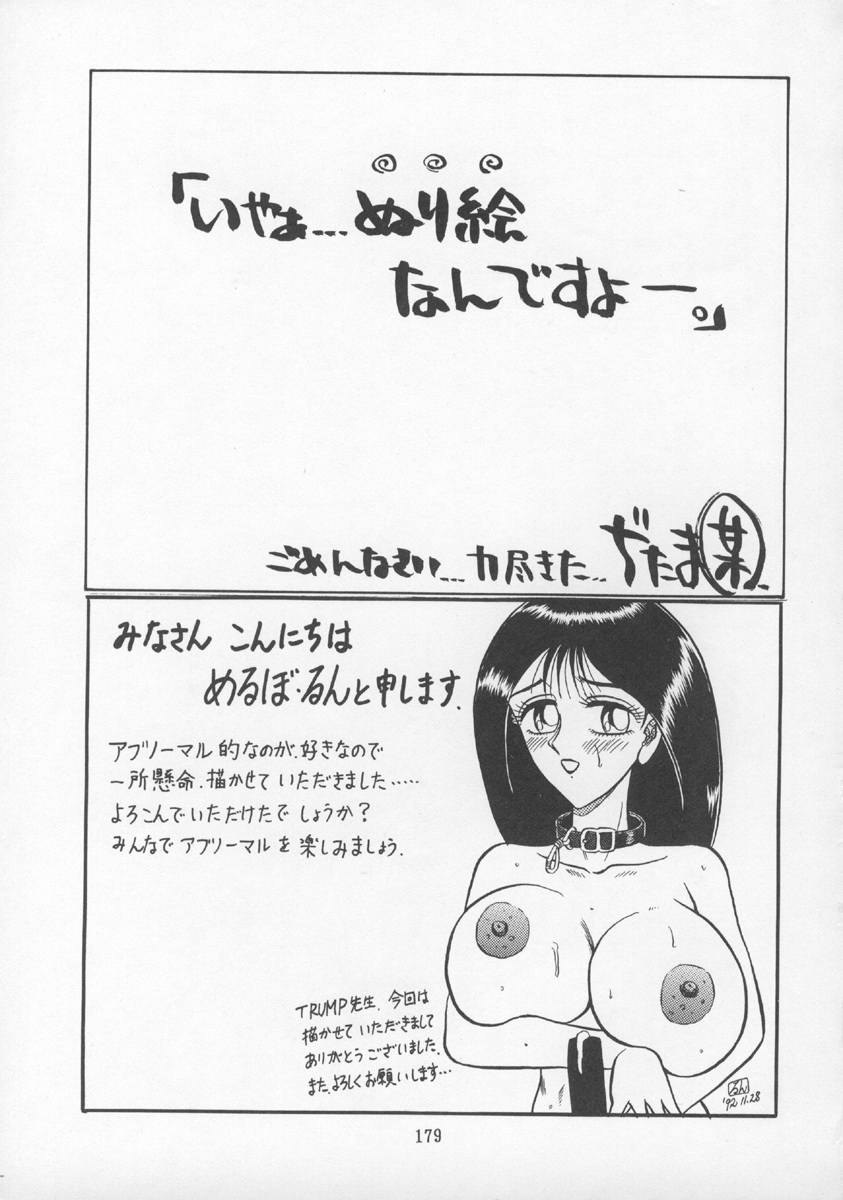 「いやぁ…ぬり絵
なんですよー。」
ごめんなさい…力尽きた‥ぢたま某
みなさん こんにちは
めるぼ・るんと申します.
アブノーマル的なのが.好きなので
一所懸命.描かせて いただきました……
よろこんでいただけたで しょうか?
みんなで アブノーマルを 楽しみましょう.
TRUMP先生.今回は
描かせて いただきまして
ありがとう ございました.
また.よろしくお願いします…
るん
'92.11.28
179